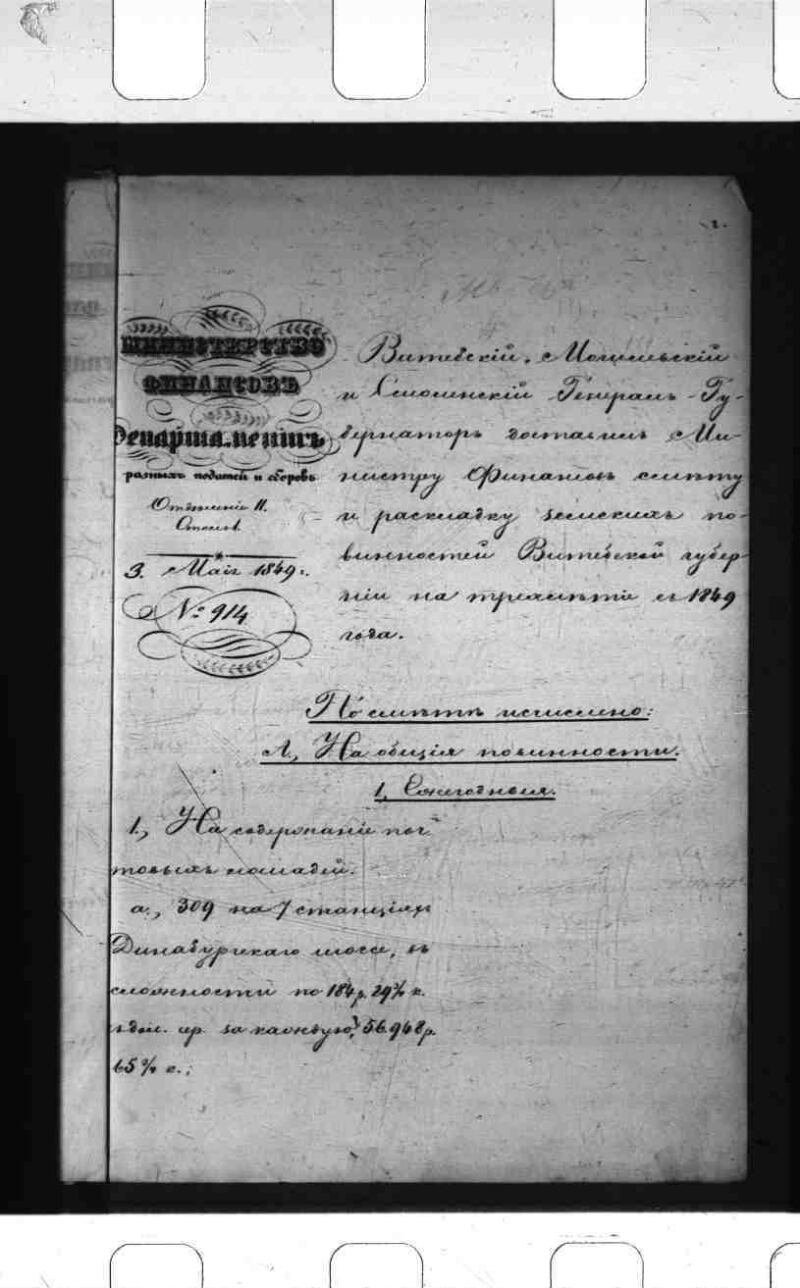 МИНИСТЕРСТВО
ФИНАНСОВЪ
Департаментъ
разныхъ податей и сборовъ
Отдѣленіе II.
Столъ 1
3. Мая 1849 г.
№ 914
Витебскій, Могилевскій
и Смоленскій Генералъ-Гу-
бернаторъ доставилъ Ми-
нистру Финансовъ смѣту
и раскладку земскихъ по-
винностей Витебской губер-
ніи на трехлѣтіе съ 1849
года.
По смѣтѣ исчислено:
А., На общія повинности.
1, Ежегодныя.
1., На содержаніе поч-
товыхъ лошадей.
а., 309 на 7 станціяхъ
Динабургскаго шоссе, въ
сложности по 184 р. 29 к.
сер. за каждую, 56.948 р.
65 к.;